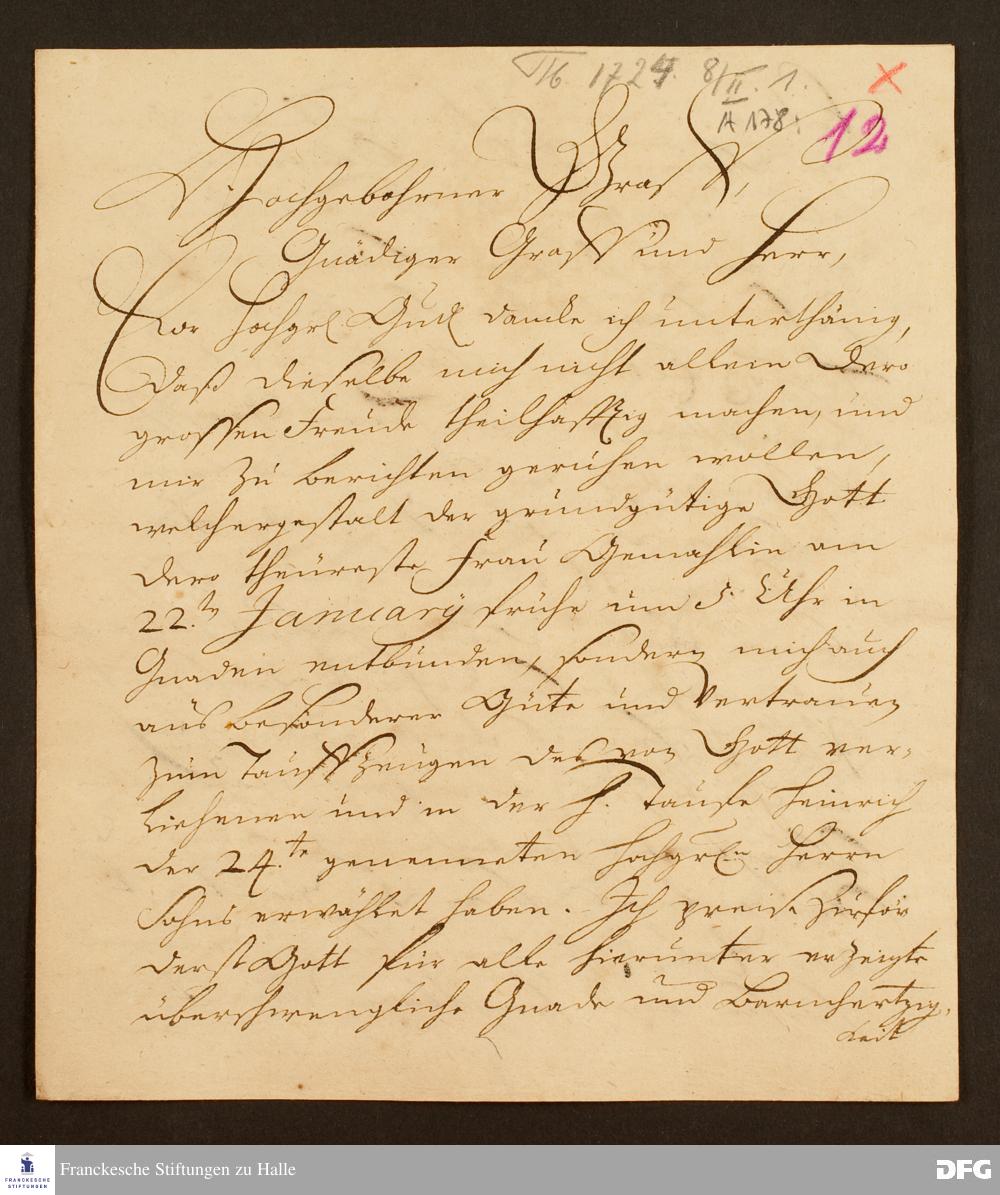 1724. 8/II. 1.
A 178.
12
Hochgebohrner Graff,
Gnädiger Graff und Herr,
Ew Hochgrl Gnd dancke ich unterthänig,
daß dieselbe mich nicht allein Dero
grossen Freude theilhafftig machen, und
mir zu berichten geruhen wollen,
welchergestalt der grundgütige Gott
dero theureste Frau Gemahlin am
22.ten January frühe um 5 Uhr in
Gnaden entbunden, sondern mich auch
aus besonderer Güte und Vertrauen
zum Tauffzeugen des von Gott ver-
liehenen und in der H. Taufe Heinrich
der 24.te genenneten Hochgrln Herrn
Sohns erwählet haben. Ich preise zuför
derst Gott für alle hierunter erzeigte
überschwengliche Gnade und Barmhertzig-
keit
Franckesche Stiftungen zu Halle
FRANCKESCHE
STIFTUNGEN
DFG